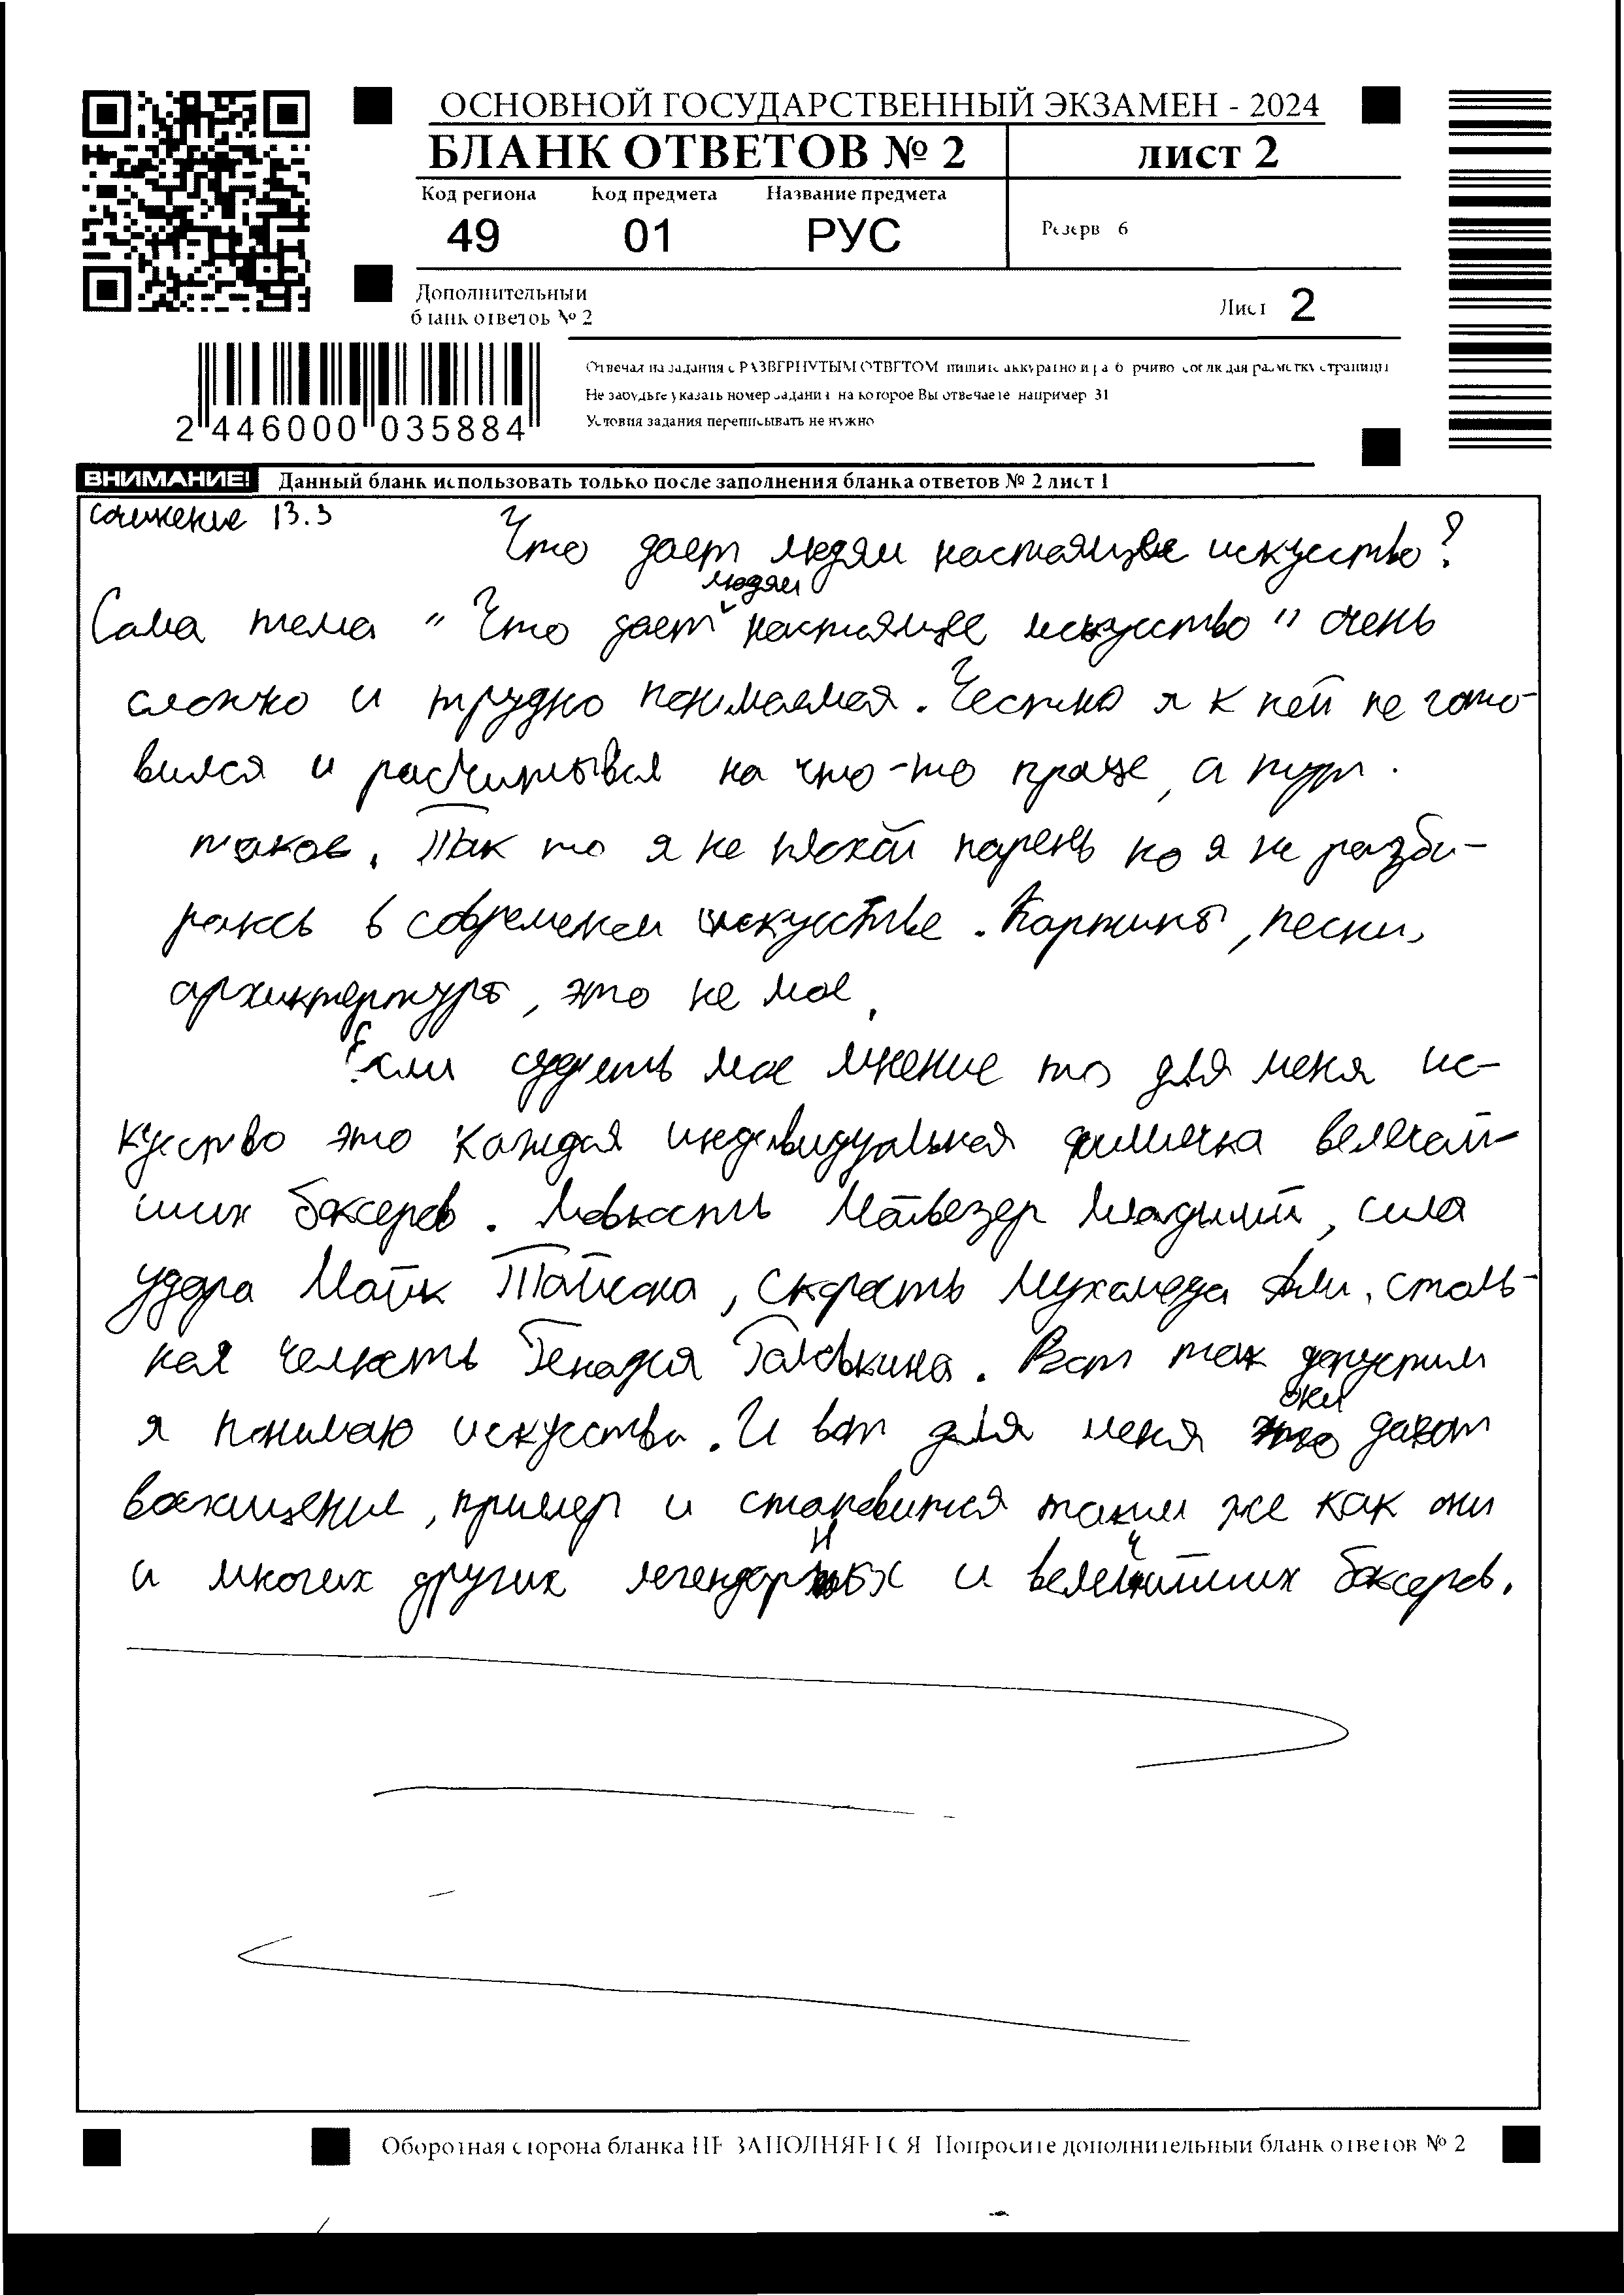 ОСНОВНОЙ ГОСУДАРСТВЕННЫЙ ЭКЗАМЕН - 2024
БЛАНК ОТВЕТОВ № 2
ЛИСТ 2
Код региона Код предмета Название предмета
49 01 РУС
Резерв 6
Дополнительный
бланк ответов № 2
Лист 2
Отвечая на задания с РАЗВЕРНУТЫМ ОТВЕТОМ пишите аккуратно и разборчиво соблюдая разметку страницы
Не забудьте указать номер задания на которое Вы отвечаете например 31
Условия задания переписывать не нужно
2 446000 035884
ВНИМАНИЕ! Данный бланк использовать только после заполнения бланка ответов № 2 лист 1
сочинение 13.3
Что дает людям настоящее искусство?
людям
Сама тема "Что дает настоящее искусство" очень
сложно и трудно понимаемая. Честно я к ней не гото-
вился и расчитывал на что-то проще, а тут
такое. Так то я не плохой парень но я не разби-
раюсь в современом искустве. Картины, песни,
архиктертура, это не мое.
Если судить мое мнение то для меня ис-
куство это каждая индивидуальная фишечка велечай-
ших боксеров. Ловкость Мэйвезер Младший, сила
удара Майк Тайсона, скорость Мухамеда Али, сталь-
ная челюсть Генадия Головкина. Вот так допустим
я понимаю искусство. И вот для меня они дают
восхищение, пример и становится таким же как они
и многих других легендарных и велечийших боксеров.
Оборотная сторона бланка НЕ ЗАПОЛНЯЕТСЯ Попросите дополнительный бланк ответов № 2